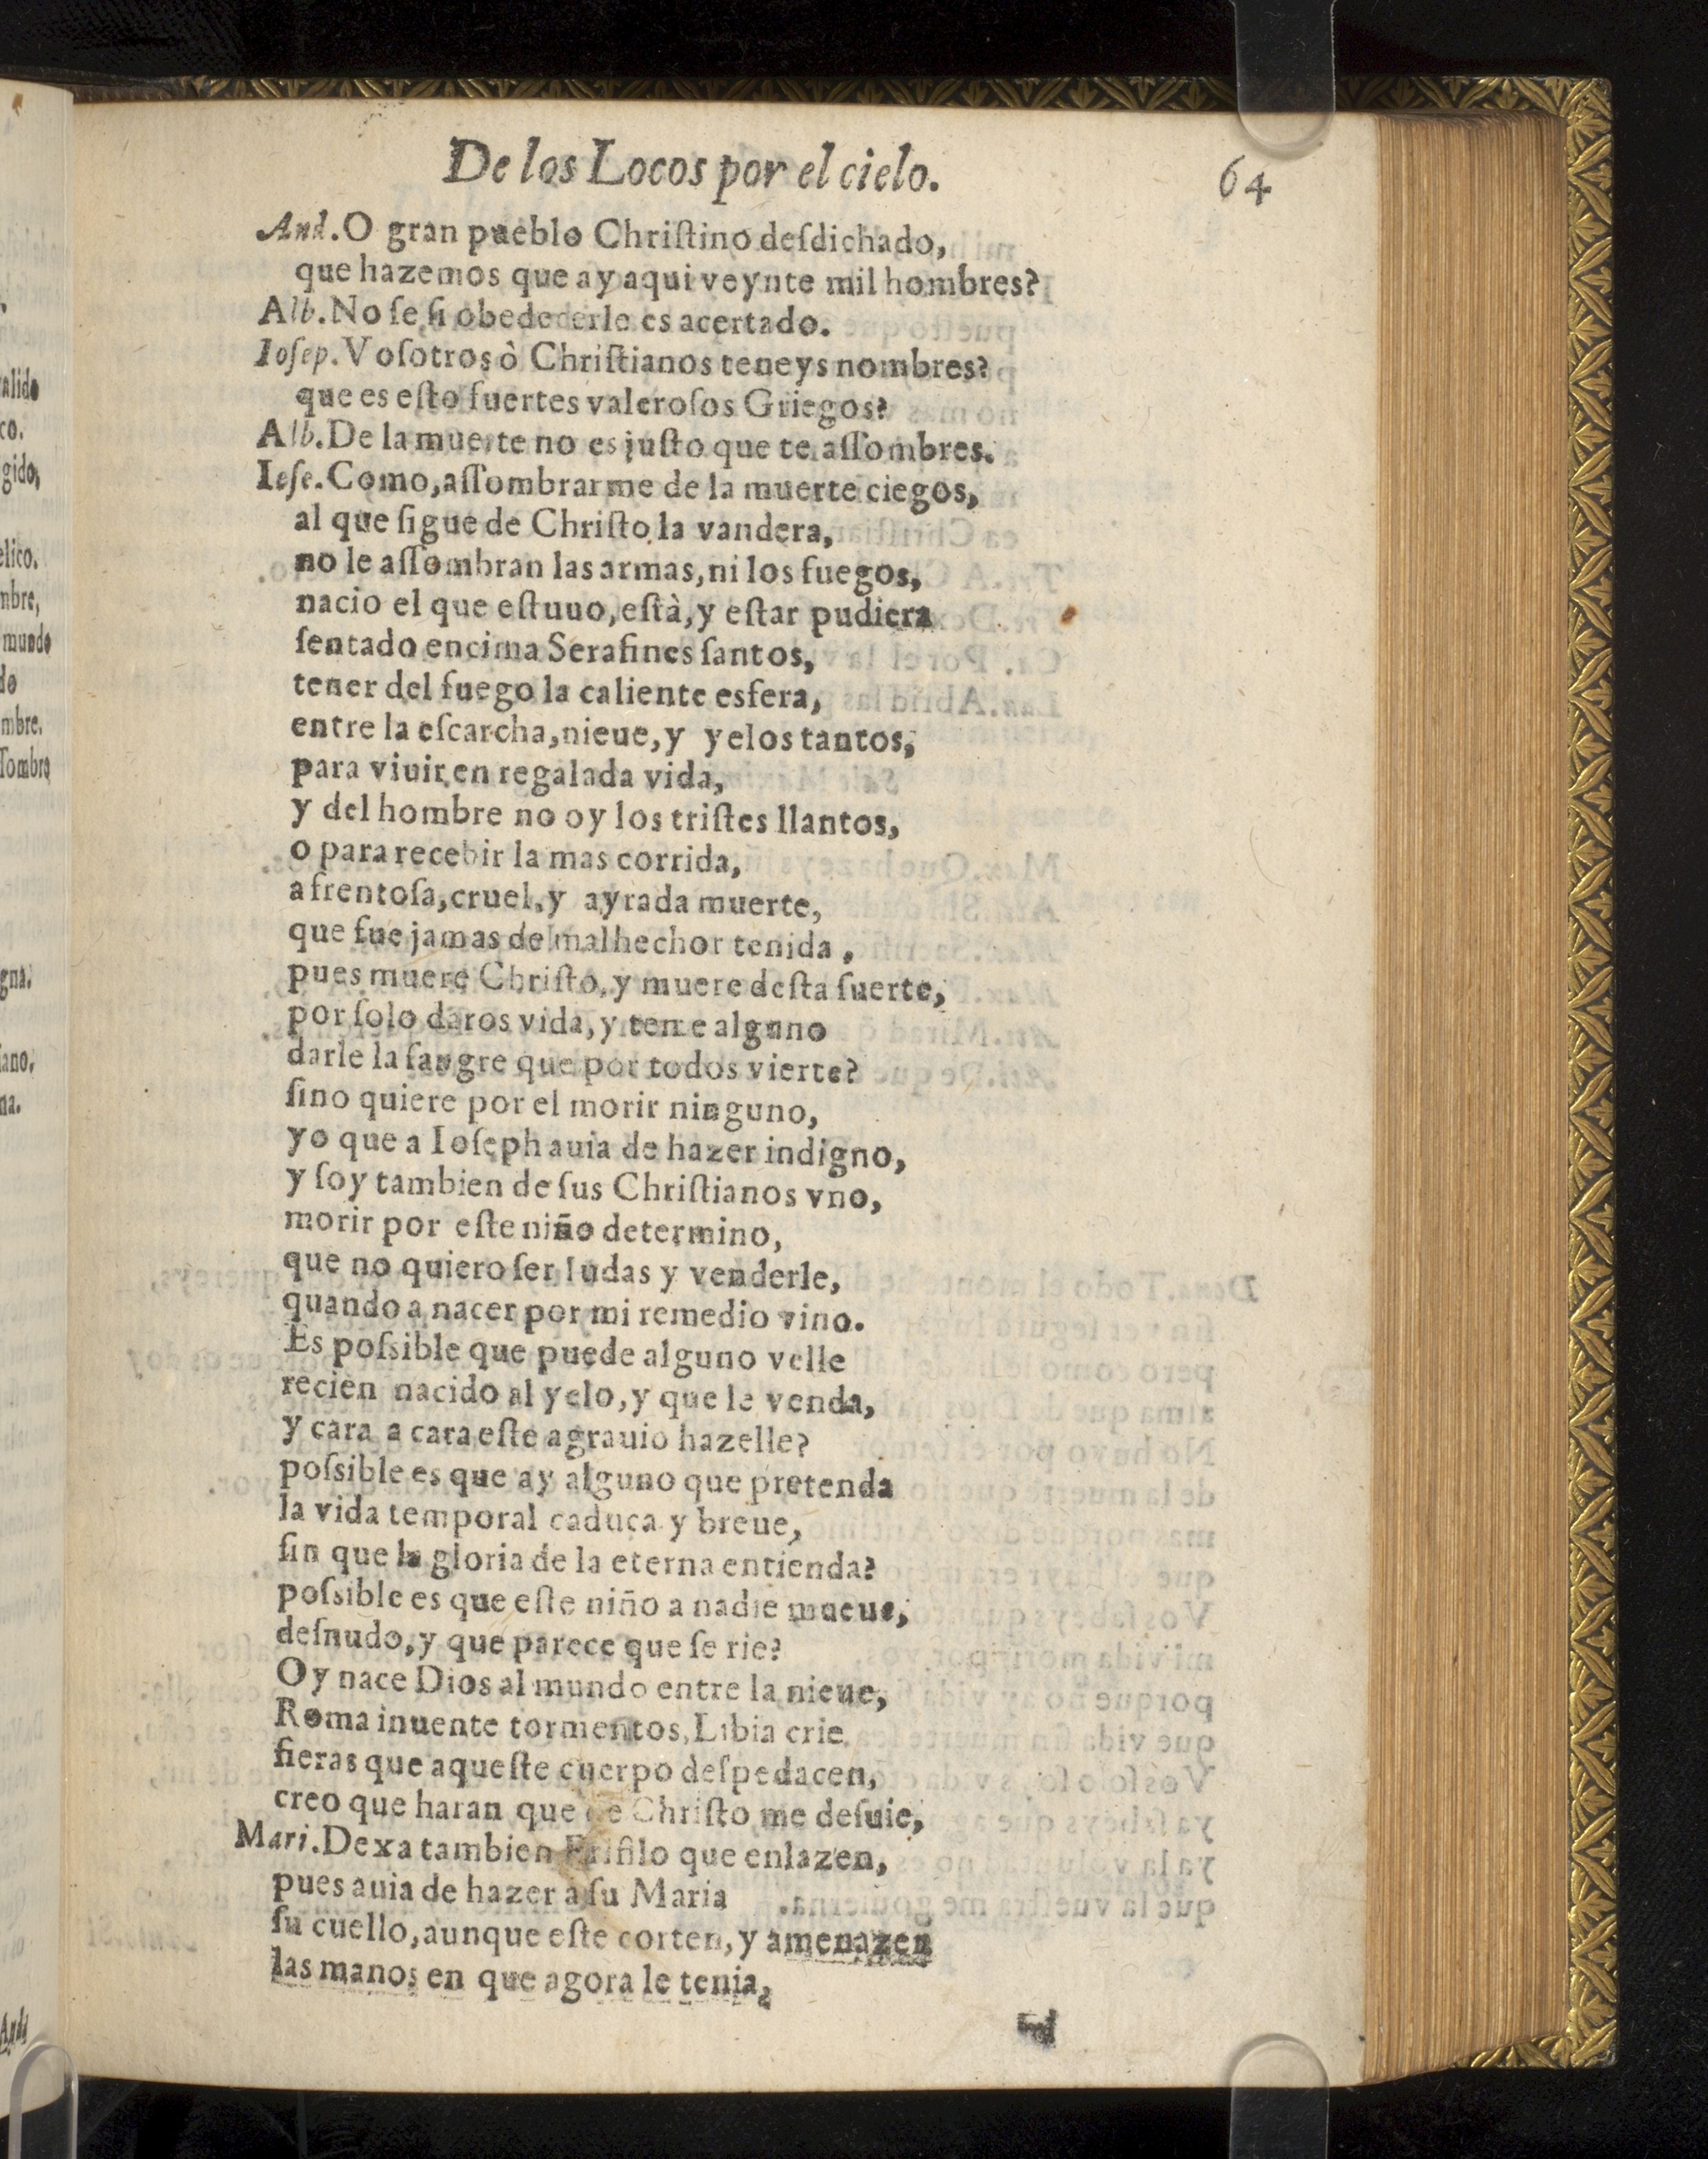 De los Locos por el cielo.
64
And. O gran pueblo Chriſtino deſdichado,
que hazemos que ay aqui veynte mil hombres?
Alb. No ſe ſi obedecerle es acertado.
Ioſep. Voſotros ò Chriſtianos teneys nombres?
que es eſto fuertes valeroſos Griegos?
Alb. De la muerte no es juſto que te aſſombres.
Ioſe. Como, aſſombrarme de la muerte ciegos,
al que ſigue de Chriſto la vandera,
no le aſſombran las armas, ni los fuegos,
nacio el que eſtuuo, eſtà, y eſtar pudiera
ſentado encima Serafines ſantos,
tener del fuego la caliente esfera,
entre la eſcarcha, nieue, y yelos tantos,
para viuir en regalada vida,
y del hombre no oy los triſtes llantos,
o para recebir la mas corrida,
afrentoſa, cruel, y ayrada muerte,
que fue jamas de malhechor tenida,
pues muere Chriſto, y muere deſta ſuerte,
por ſolo daros vida, y teme alguno
darle la ſangre que por todos vierte?
ſino quiere por el morir ninguno,
yo que a Ioſeph auia de hazer indigno,
y ſoy tambien de ſus Chriſtianos vno,
morir por eſte niño determino,
que no quiero ſer Iudas y venderle,
quando a nacer por mi remedio vino.
Es poſsible que puede alguno velle
recien nacido al yelo, y que le venda,
y cara a cara eſte agrauio hazelle?
poſsible es que ay alguno que pretenda
la vida temporal caduca y breue,
ſin que la gloria de la eterna entienda?
poſsible es que eſte niño a nadie mueue,
deſnudo, y que parece que ſe rie?
Oy nace Dios al mundo entre la nieue,
Roma inuente tormentos, Libia crie
fieras que aqueſte cuerpo deſpedacen,
creo que haran que de Chriſto me deſuie,
Mari. Dexa tambien Eriſilo que enlazen,
pues auia de hazer a ſu Maria
ſu cuello, aunque eſte corten, y amenazen
las manos en que agora le tenia,